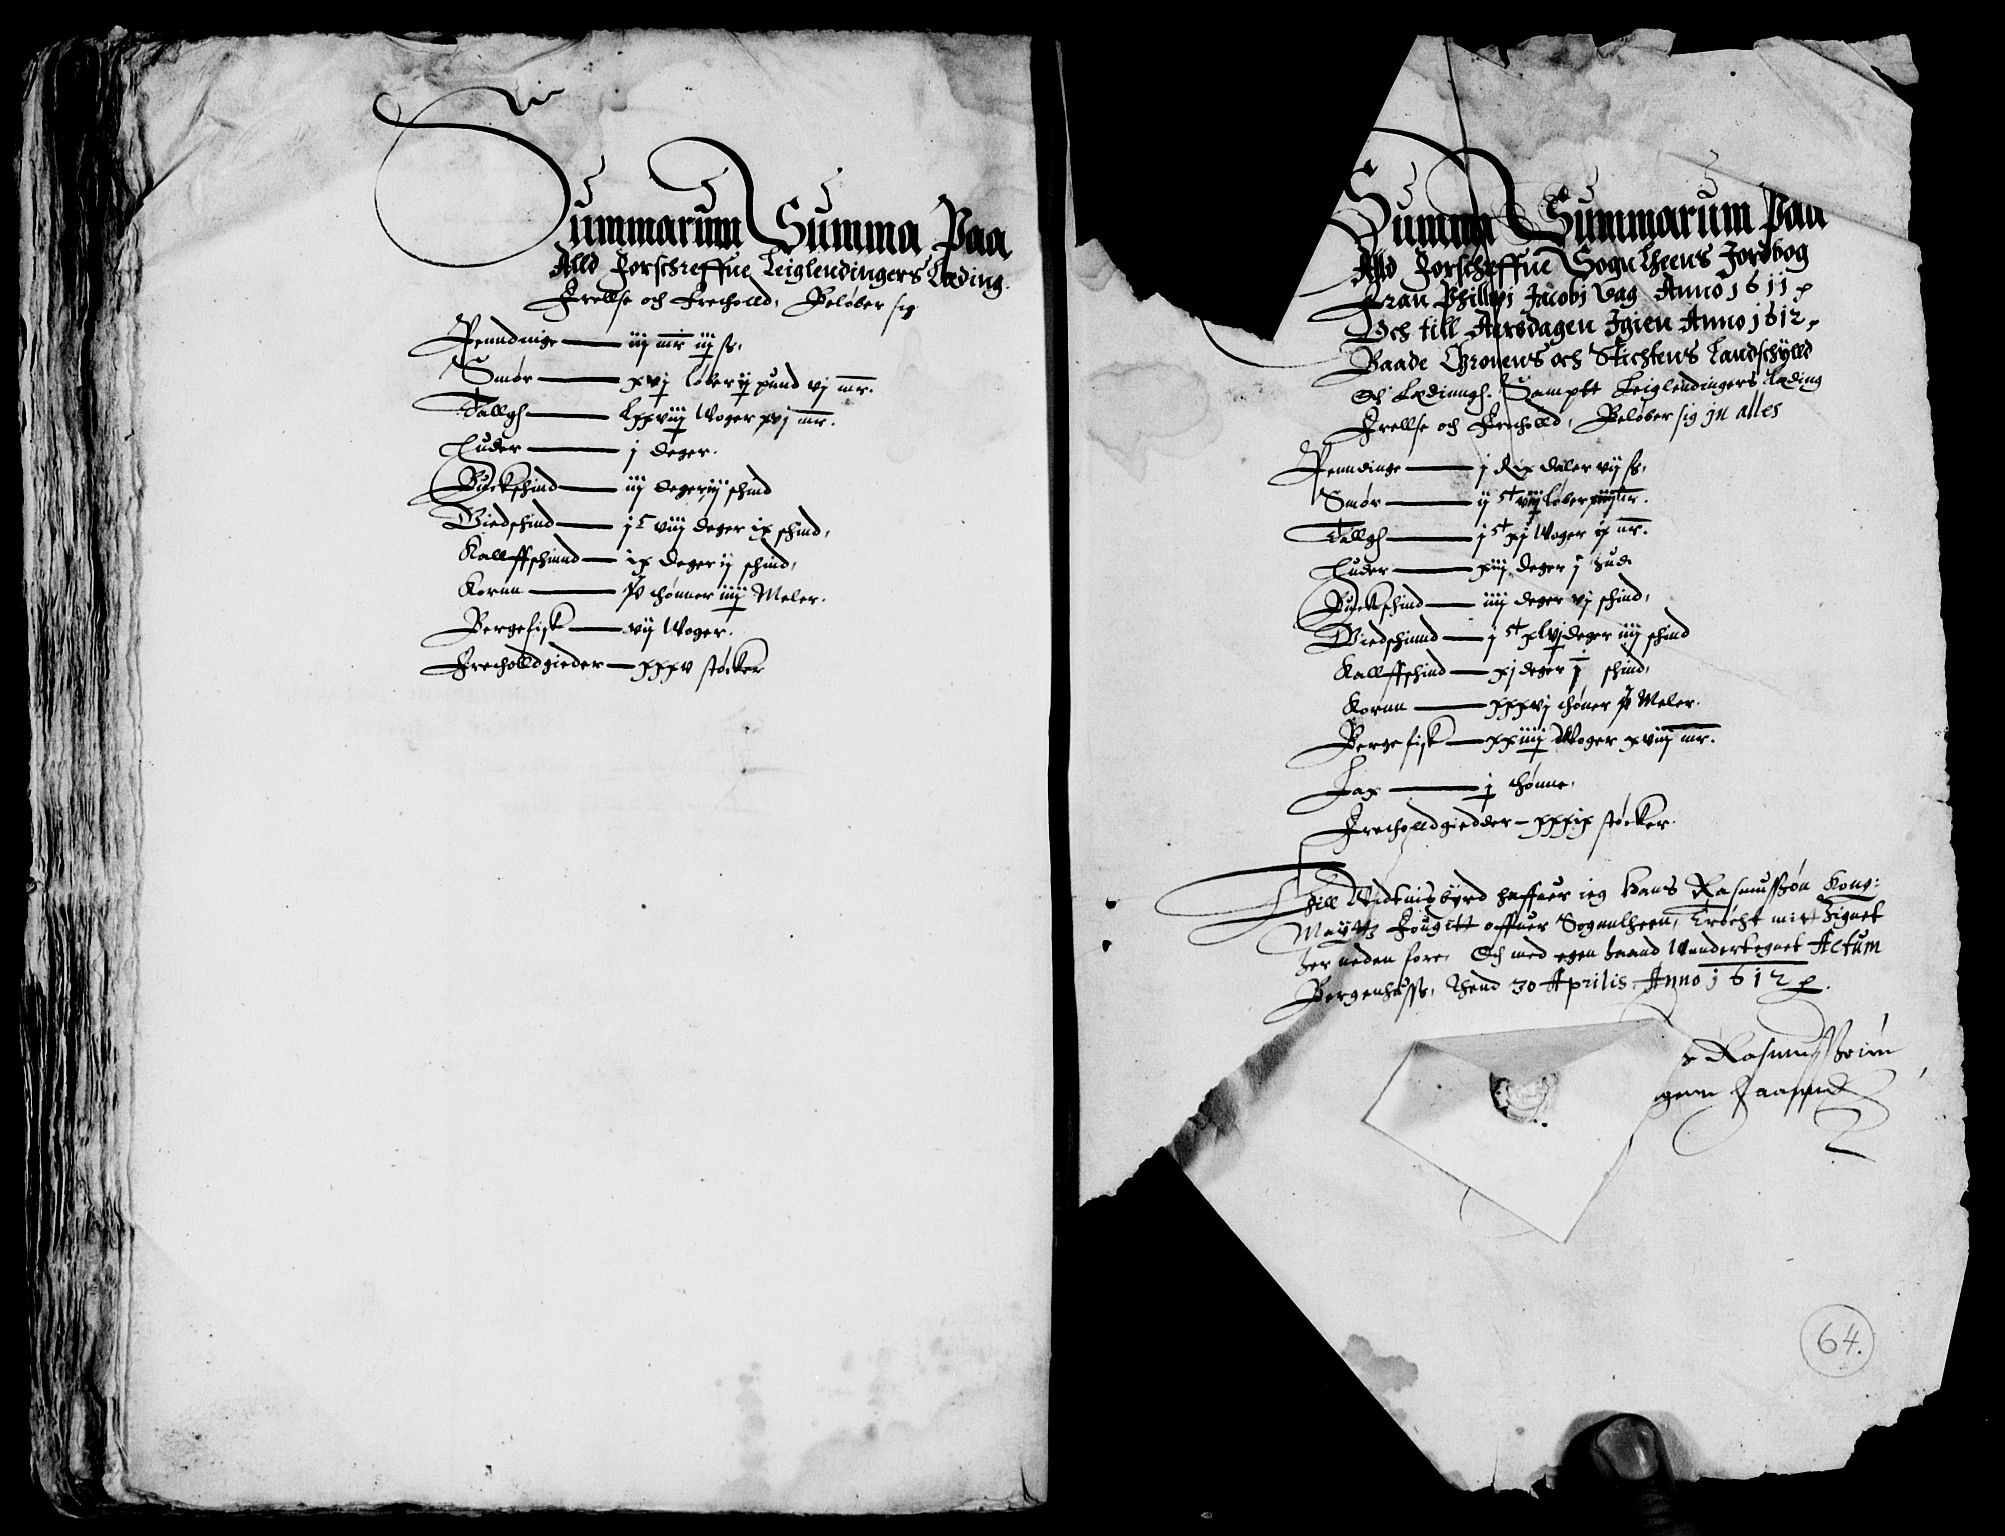 Summarum Summa Paa
Alld Forschreffne Leiglendingers Leding
Frellse och Frecholld, Beløber sig
Penndinge — iij mr iij ss,
Smør — xvj løber ij pund vj mr.
Tallgh — lxxviij Woger xvj mr.
Huder — j deger.
Buckschind — iij deger iij schind
Giedschind — j c viij deger ix schind,
Kallffschinnd — ix deger ij schind,
Kornn — thønner iiij Meler.
Bergefisk — vij Woger.
Frecholldgieder — xxxv støcker
Summa Summarum Paa
Alld Forschreffne Sogn Lheens Jordbog
Fran Phillipi Jacobi Dag Anno 1611
Och till Aarsdagen Igien Anno 1612
Baade Chronens och Stichtens Landschylld
Och Ledinngh. Sampt Leiglendingers Leding
Frellse och Frecholld, Beløber sig in alles
Penndinge — j Rix daler vij ss,
Smør — ij løber mr.
Tallgh — j xj Woger ix mr.
Huder — xiij deger j hud
Buckschind — iiij deger vj schind,
Giedschinnd — j xlvj deger iiij schind
Kallffschind — xj deger j schind,
Kornn — xxxvj thøner Meler.
Bergefisk — xxiiij Woger xviij mr.
Lax — j thønne,
Frecholldgiedder — xxxix støcker.
Till Widnisbyrd haffuer ieg Hans Rasmussøn Kong:
Maytts Fougitt offuer Sognnlheen, Tröcht mit Zignet
her neden fore. Och med egen haand Wnndertegnet Actum
Bergenhuss, Thend 30 Aprilis Anno 1612
Rasmussøn
haannd
64.